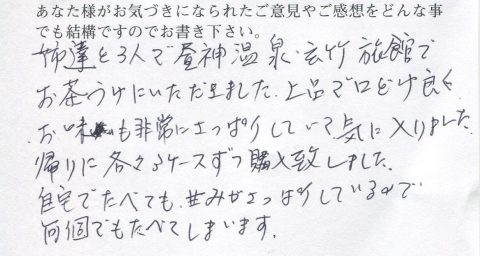 あなた様がお気づきになられたご意見やご感想をどんな事
でも結構ですのでお書き下さい。
姉達と3人で昼神温泉・玄竹旅館で
お茶うけにいただきました。上品で口どけ良く
お味も非常にさっぱりしていて気に入りました。
帰りに各々3ケースずつ購入致しました。
自宅でたべても、甘みがさっぱりしているので
何個でもたべてしまいます。